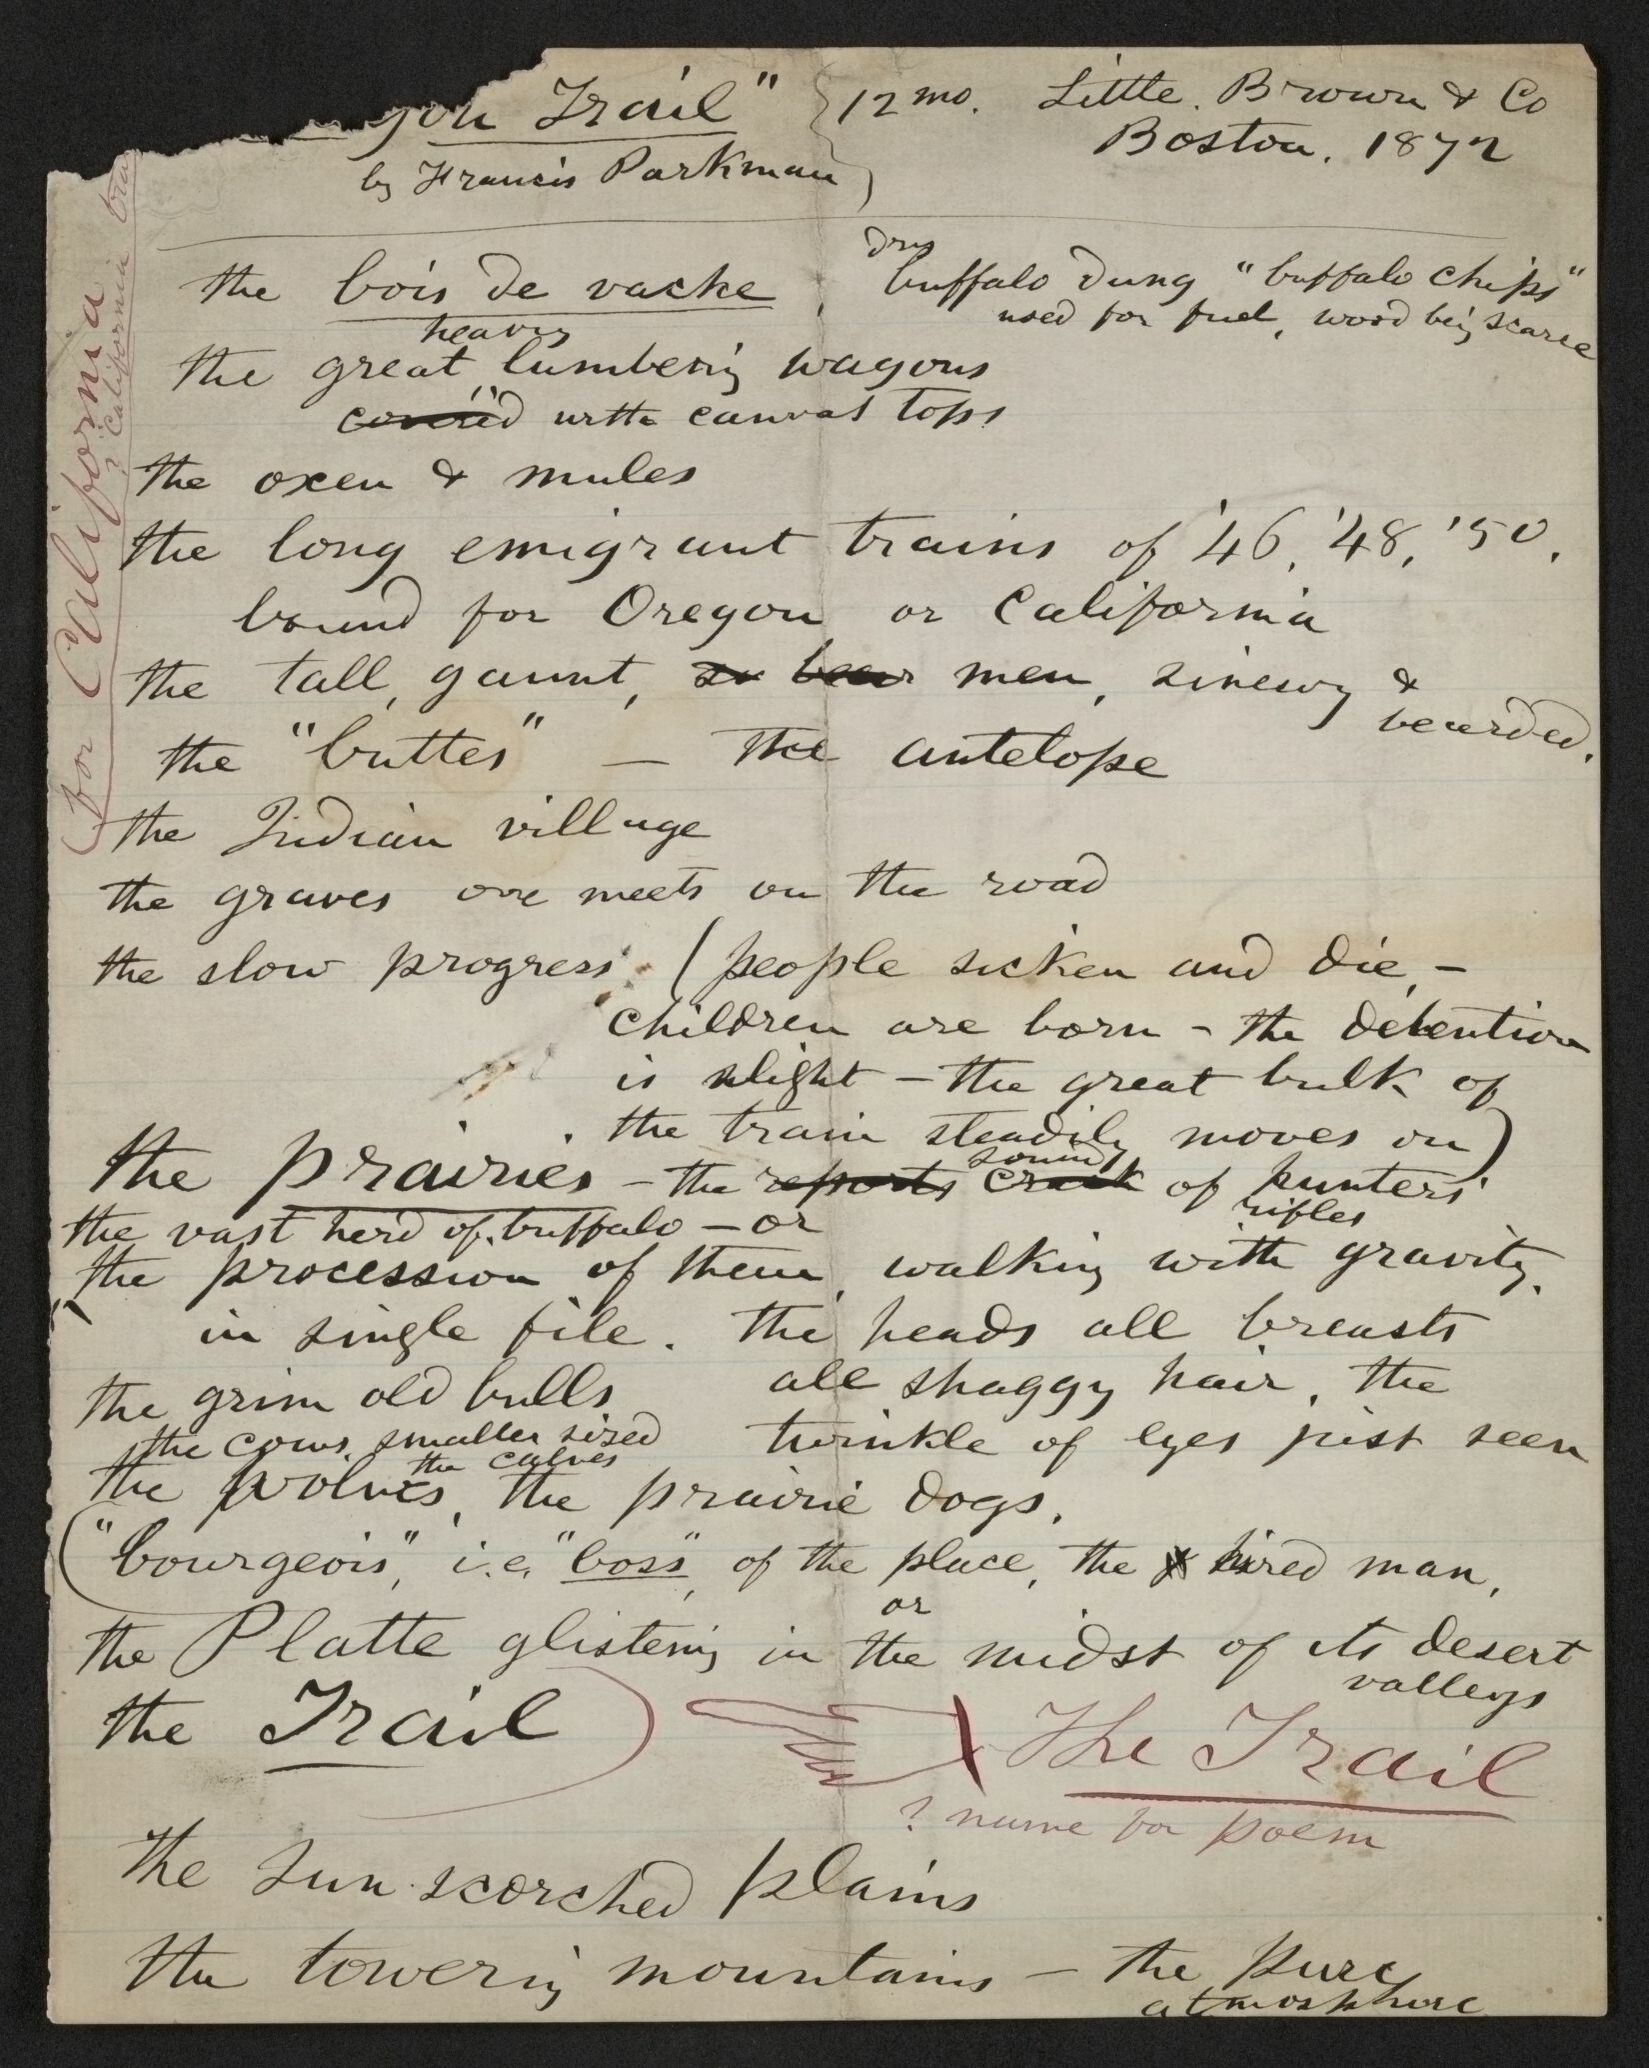 gon Trail" 12 mo. Little. Brown & Co
by Francis Parkman Boston. 1872
for California
? California tra
the bois de vache, dry buffalo dung "buffalo chips"
used for fuel, wood be'g scarce
the great heavy lumberi'g wagons
covered with canvas tops
the oxen & mules
the long emigrant trains of '46, '48, '50,
bound for Oregon or California
the tall, gaunt, men, sinewy &
bearded.
the "buttes" — the antelope
the Indian village
the graves one meets on the road
the slow progress (people sicken and die, –
children are born – the detention
is slight – the great bulk of
the train steadily moves on)
the prairies – the reports crack sound of hunters'
rifles
the vast herd of buffalo – or
the procession of them, walking with gravity,
in single file. the heads all breasts
the grim old bulls all shaggy hair, the
the cows, smaller sized twinkle of eyes just seen
the calves
the wolves, the prairie dogs,
("bourgeois", i.e. "boss", of the place, or the hired man,
the Platte glisteni'g in the midst of its desert
valleys
the Trail) The Trail
? name for poem
the sun-scorched plains
the toweri'g mountains – the pure
atmosphere